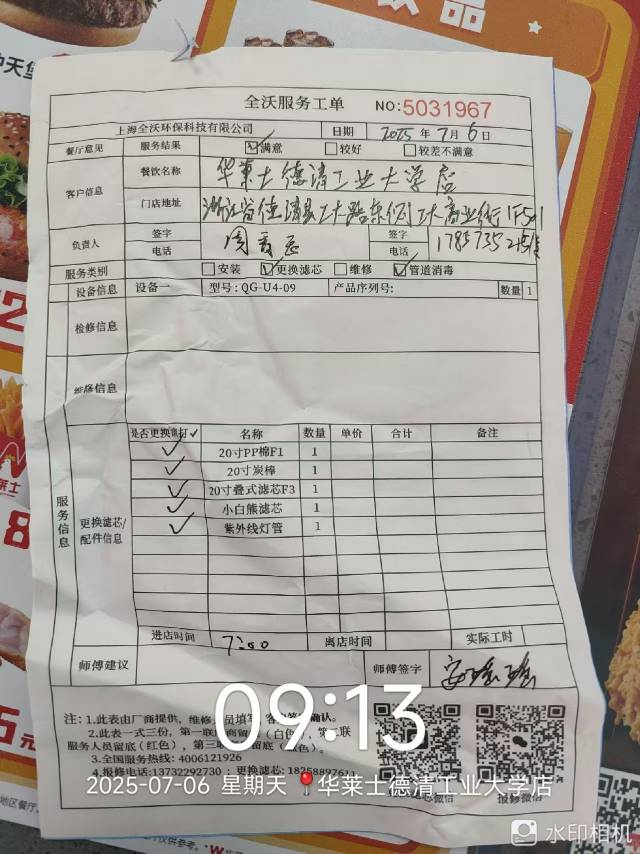 饮品
全沃服务工单 NO:5031967
上海全沃环保科技有限公司 日期 2025年7月6日
餐厅意见 服务结果 ☑满意 □较好 □较差不满意
客户信息 餐饮名称 华莱士德清工业大学店
门店地址 浙江省德清县工大路东侧工大商业街1F501
负责人 签字 签字
电话 电话
服务类别 □安装 ☑更换滤芯 □维修 ☑管道消毒
设备信息 设备一 型号: QG-U4-09 产品序列号: 数量 1
检修信息
维修信息
服务信息
更换滤芯/配件信息
是否更换请打✓ 名称 数量 单价 合计 备注
✓ 20寸PP棉F1 1
✓ 20寸炭棒 1
✓ 20寸叠式滤芯F3 1
✓ 小白熊滤芯 1
✓ 紫外线灯管 1
进店时间 7:00 离店时间 实际工时
师傅建议 师傅签字
注: 1.此表由厂商提供, 维修人员填写, 客户签字确认。
2.此表一式三份, 第一联厂商留底(白色), 第二联
服务人员留底(红色), 第三联 留底( 色)。
3.全国服务热线: 4006121926
4.报修电话:13732292730 ; 更换滤芯: 18258897611
报修微信
09:13
2025-07-06 星期天 华莱士德清工业大学店
水印相机